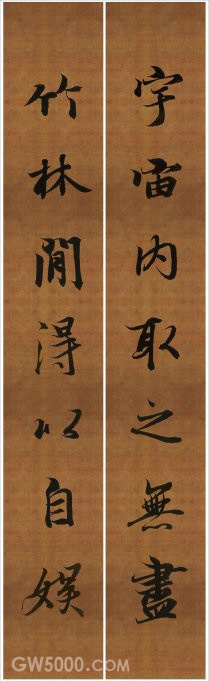 宇宙內取之無盡
竹林間得以自娛
GW5000.COM